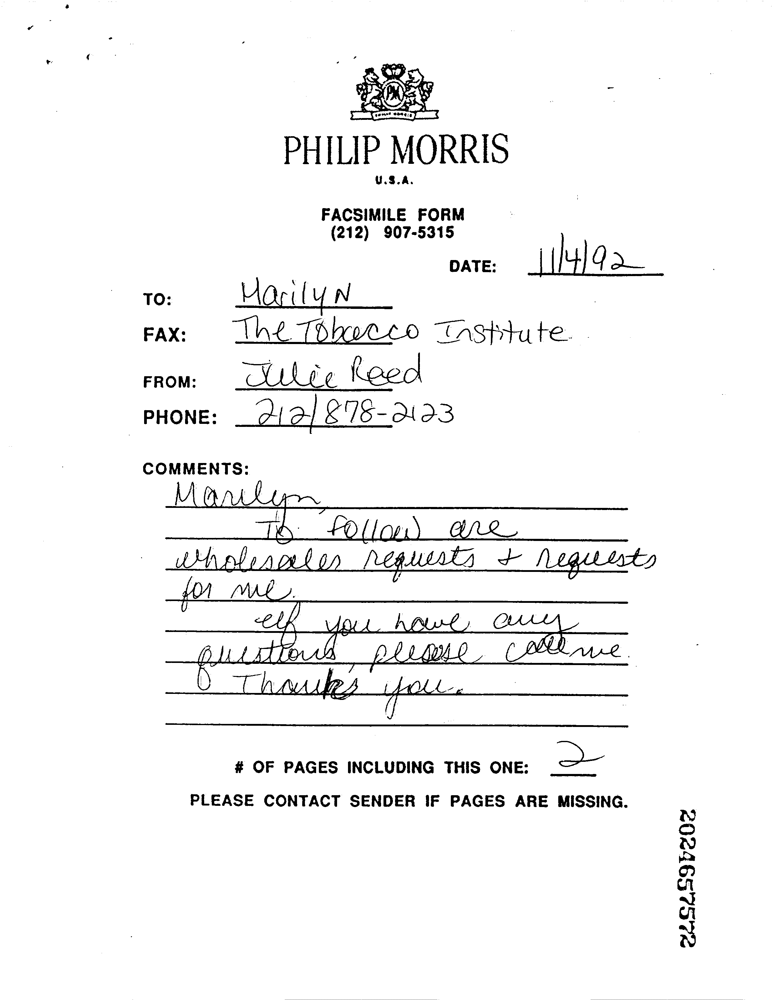 PM
PHILIP MORRIS
PHILIP MORRIS
U.S.A.
FACSIMILE FORM
(212) 907-5315
DATE: 11/4/92
TO: Marilyn
FAX: The Tobacco Institute
FROM: Julie Reed
PHONE: 212/878-2123
COMMENTS:
Marilyn,
To follow are
wholesaler requests + requests
for me.
If you have any
questions, please call me.
Thanks you.
# OF PAGES INCLUDING THIS ONE: 2
PLEASE CONTACT SENDER IF PAGES ARE MISSING.
2024657572